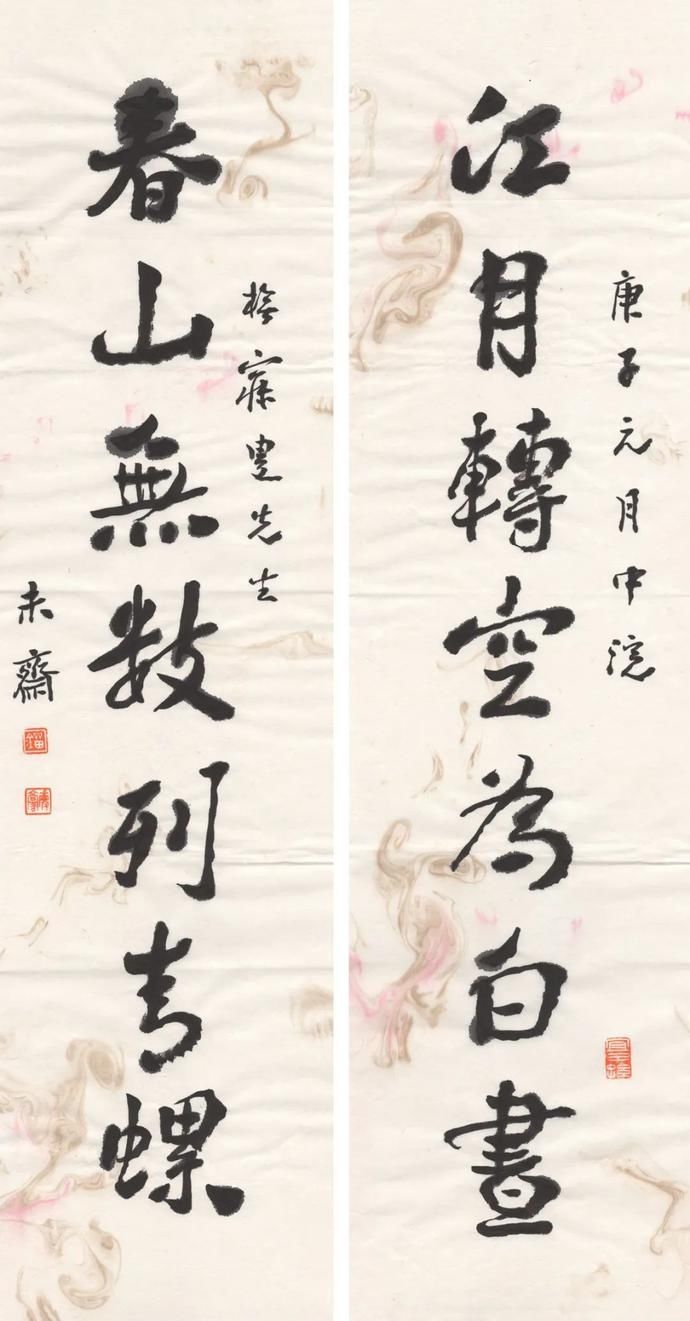 庚子元月中浣
江月轉空為白晝
先生
春山無數列青螺
未齋